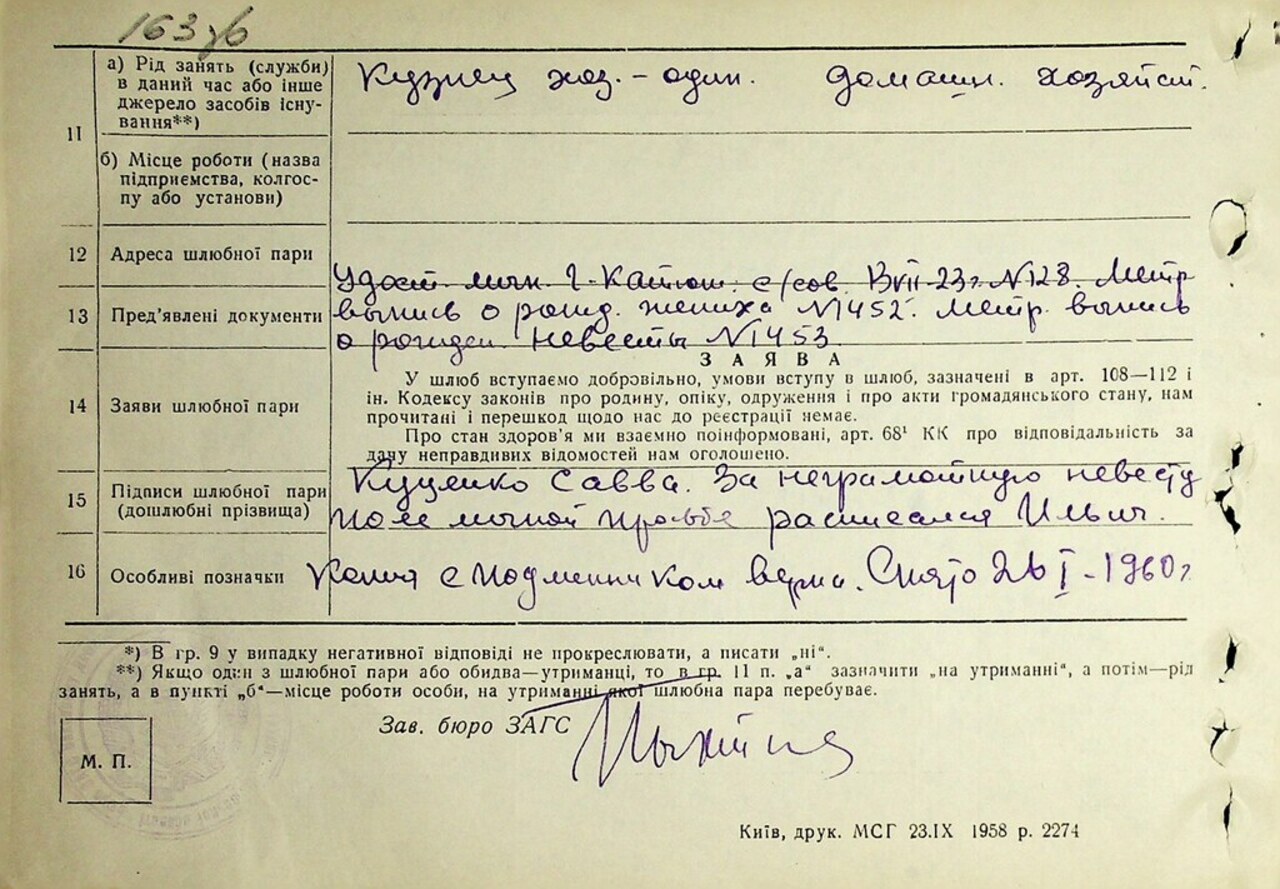 163зв
11
а) Рід занять (служби)
в даний час або інше
джерело засобів існу-
вання**)
Кузнец хоз.-один. домашн. хозяйст.
б) Місце роботи (назва
підприємства, колгос-
пу або установи)
12 Адреса шлюбної пари
13 Пред’явлені документи
Удост личн. с/сов. 23г. N128. Метр
выпись о рожд. жениха N1452. Метр. выпись
о рожден. невесты N1453
14 Заяви шлюбної пари
ЗАЯВА
У шлюб вступаємо добровільно, умови вступу в шлюб, зазначені в арт. 108—112 і
ін. Кодексу законів про родину, опіку, одруження і про акти громадянського стану, нам
прочитані і перешкод щодо нас до реєстрації немає.
Про стан здоров’я ми взаємно поінформовані, арт. 68¹ КК про відповідальність за
дачу неправдивих відомостей нам оголошено.
15 Підписи шлюбної пари
(дошлюбні прізвища)
Куценко Савва. За неграмотную невесту
по ее личной просьбе расписался Ильич.
16 Особливі позначки
Копия с подлинником верна. Снято 26 I-1960г
*) В гр. 9 у випадку негативної відповіді не прокреслювати, а писати „ні“.
**) Якщо один з шлюбної пари або обидва—утриманці, то в гр. 11 п. „а“ зазначити „на утриманні“, а потім—рід
занять, а в пункті „б“—місце роботи особи, на утриманні якої шлюбна пара перебуває.
Зав. бюро ЗАГС
М. П.
Київ, друк. МСГ 23.IX 1958 р. 2274